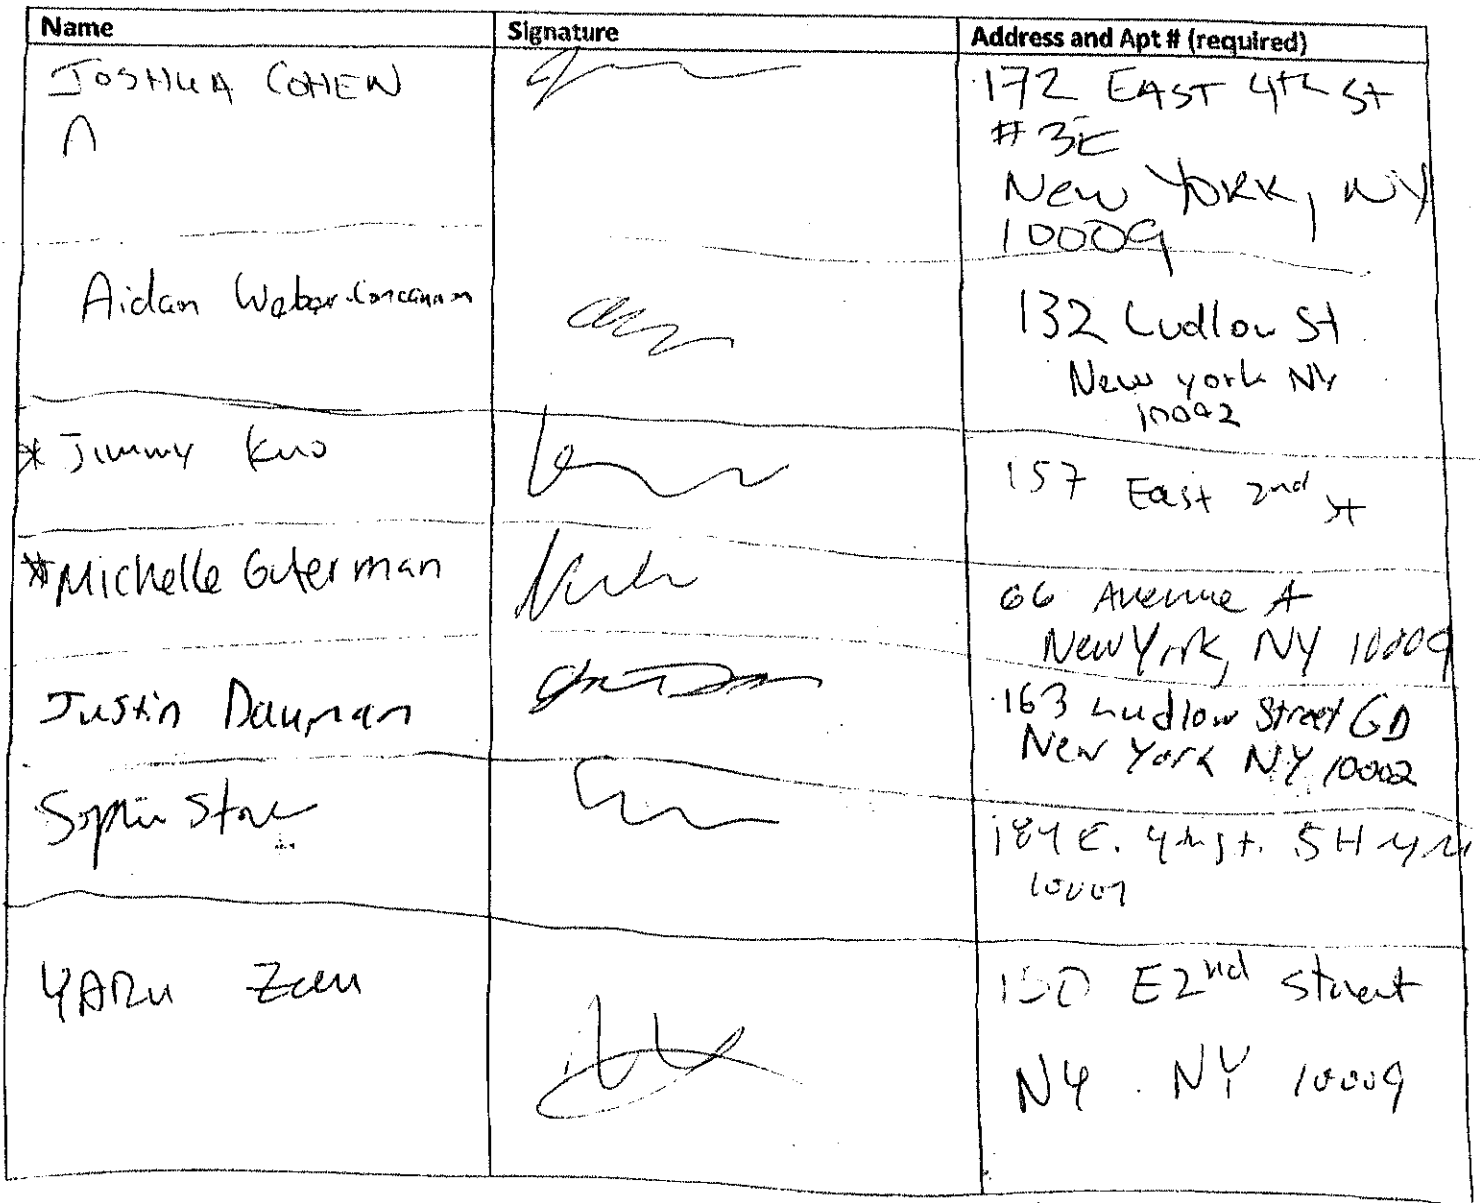 Name Signature Address and Apt # (required)
JOSHUA COHEN
172 EAST 4th St
#3E
New YORK, NY
10009
Aidan Weber-Concannon
132 Ludlow St
New york NY
10002
* Jimmy Kuo
157 East 2nd St
* Michelle Guterman
66 Avenue A
New York, NY 10009
Justin Dauman
163 Ludlow Street GD
New York NY 10002
Sophie Stone
184 E. 4th St. 5H
YARu
E 2nd Street
NY. NY 10009